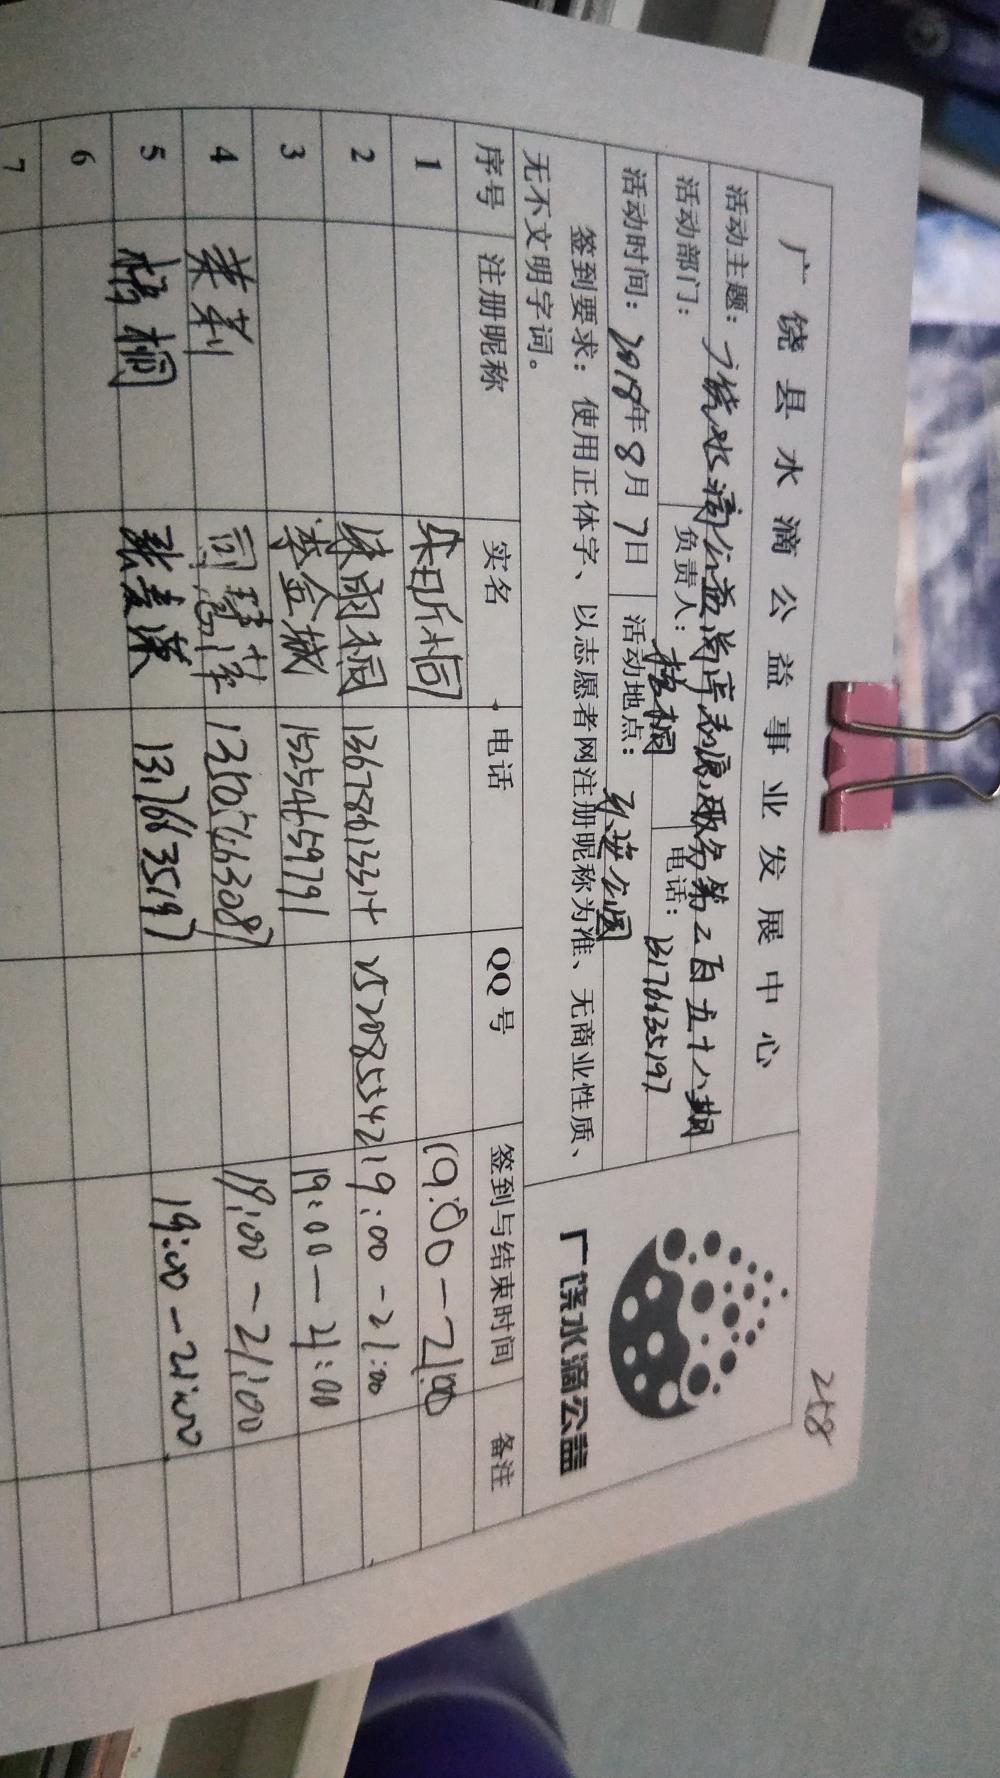 258
广饶县水滴公益事业发展中心
广饶水滴公益
活动主题：广饶水滴公益尚庄志愿服务第二百五十八期
活动部门： 负责人：梧桐 电话：13176635197
活动时间：2018年8月7日 活动地点：乐进公园
签到要求：使用正体字、以志愿者网注册昵称为准、无商业性质、
无不文明字词。
序号 注册昵称 实名 电话 QQ号 签到与结束时间 备注
1 19:00-21:00
2 雨桐 2520855542 19:00-21:00
3 李金城 15254659791 19:00-21:00
4 茉莉 19:00-21:00
5 梧桐 13176635197 19:00-21:00
6
7